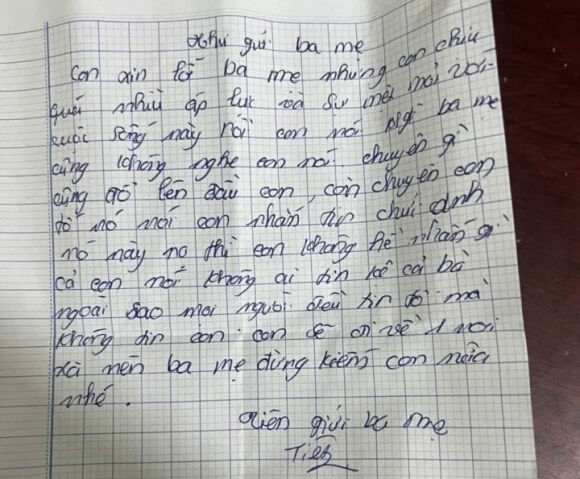 thư gửi ba mẹ
con xin lỗi ba mẹ nhưng con chịu
quá nhiều áp lực và sự mệt mỏi với
cuộc sống này rồi con nói ba mẹ
cũng không nghe con nói chuyện gì
cũng đổ lên đầu con, còn chuyện con
nó nói con nhắn tin chưi
nó này nọ thì con không hề nhắn gì
cả con nói không ai tin kể cả bà
ngoại sao mọi người đều tin mà
không tin con con sẽ đi về 1 nơi
xa nên ba mẹ đừng kiếm con nữa
nhé.
ba mẹ